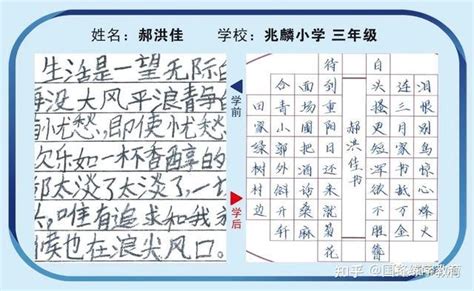 姓名:郝洪佳 学校:兆麟小学 三年级
生活是一望无际的
海没大风平浪静
有忧愁,即使忧愁
欢乐如一杯香醇的
都太淡了太淡了,一
,唯有追求和我
候也在浪尖风口。
学前
学后
泪恨别鸟惊心烽火
连三月家书抵万金
白头搔更短浑欲不胜簪
郝洪佳书
待到重阳日还来就菊花
面场圃把酒话桑麻
合青山郭外斜开轩
田家绿树村边
知乎 @国峰练字教育